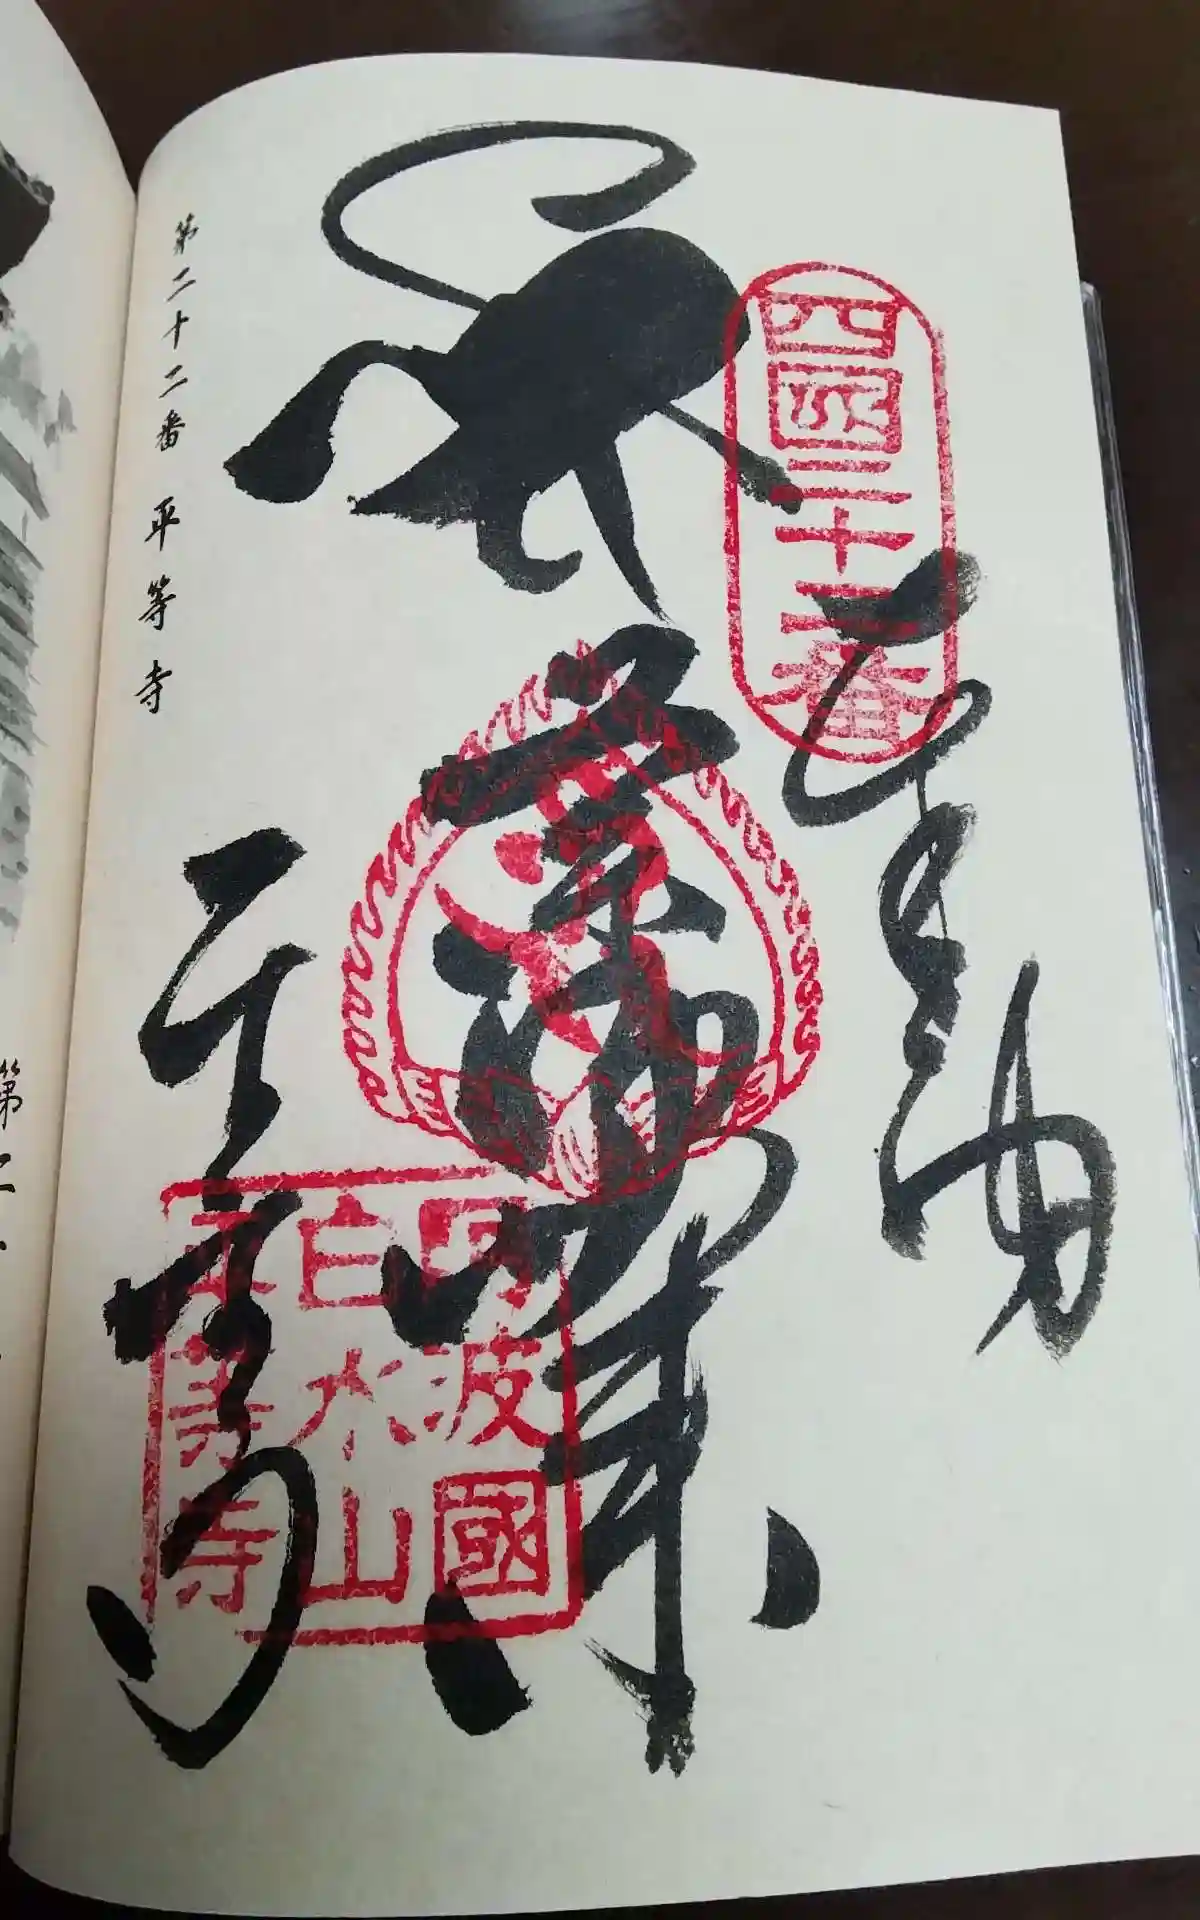 四國二十二番
奉納
薬師如来
阿波國
白水山
平等寺
平等寺
第二十二番 平等寺
第二